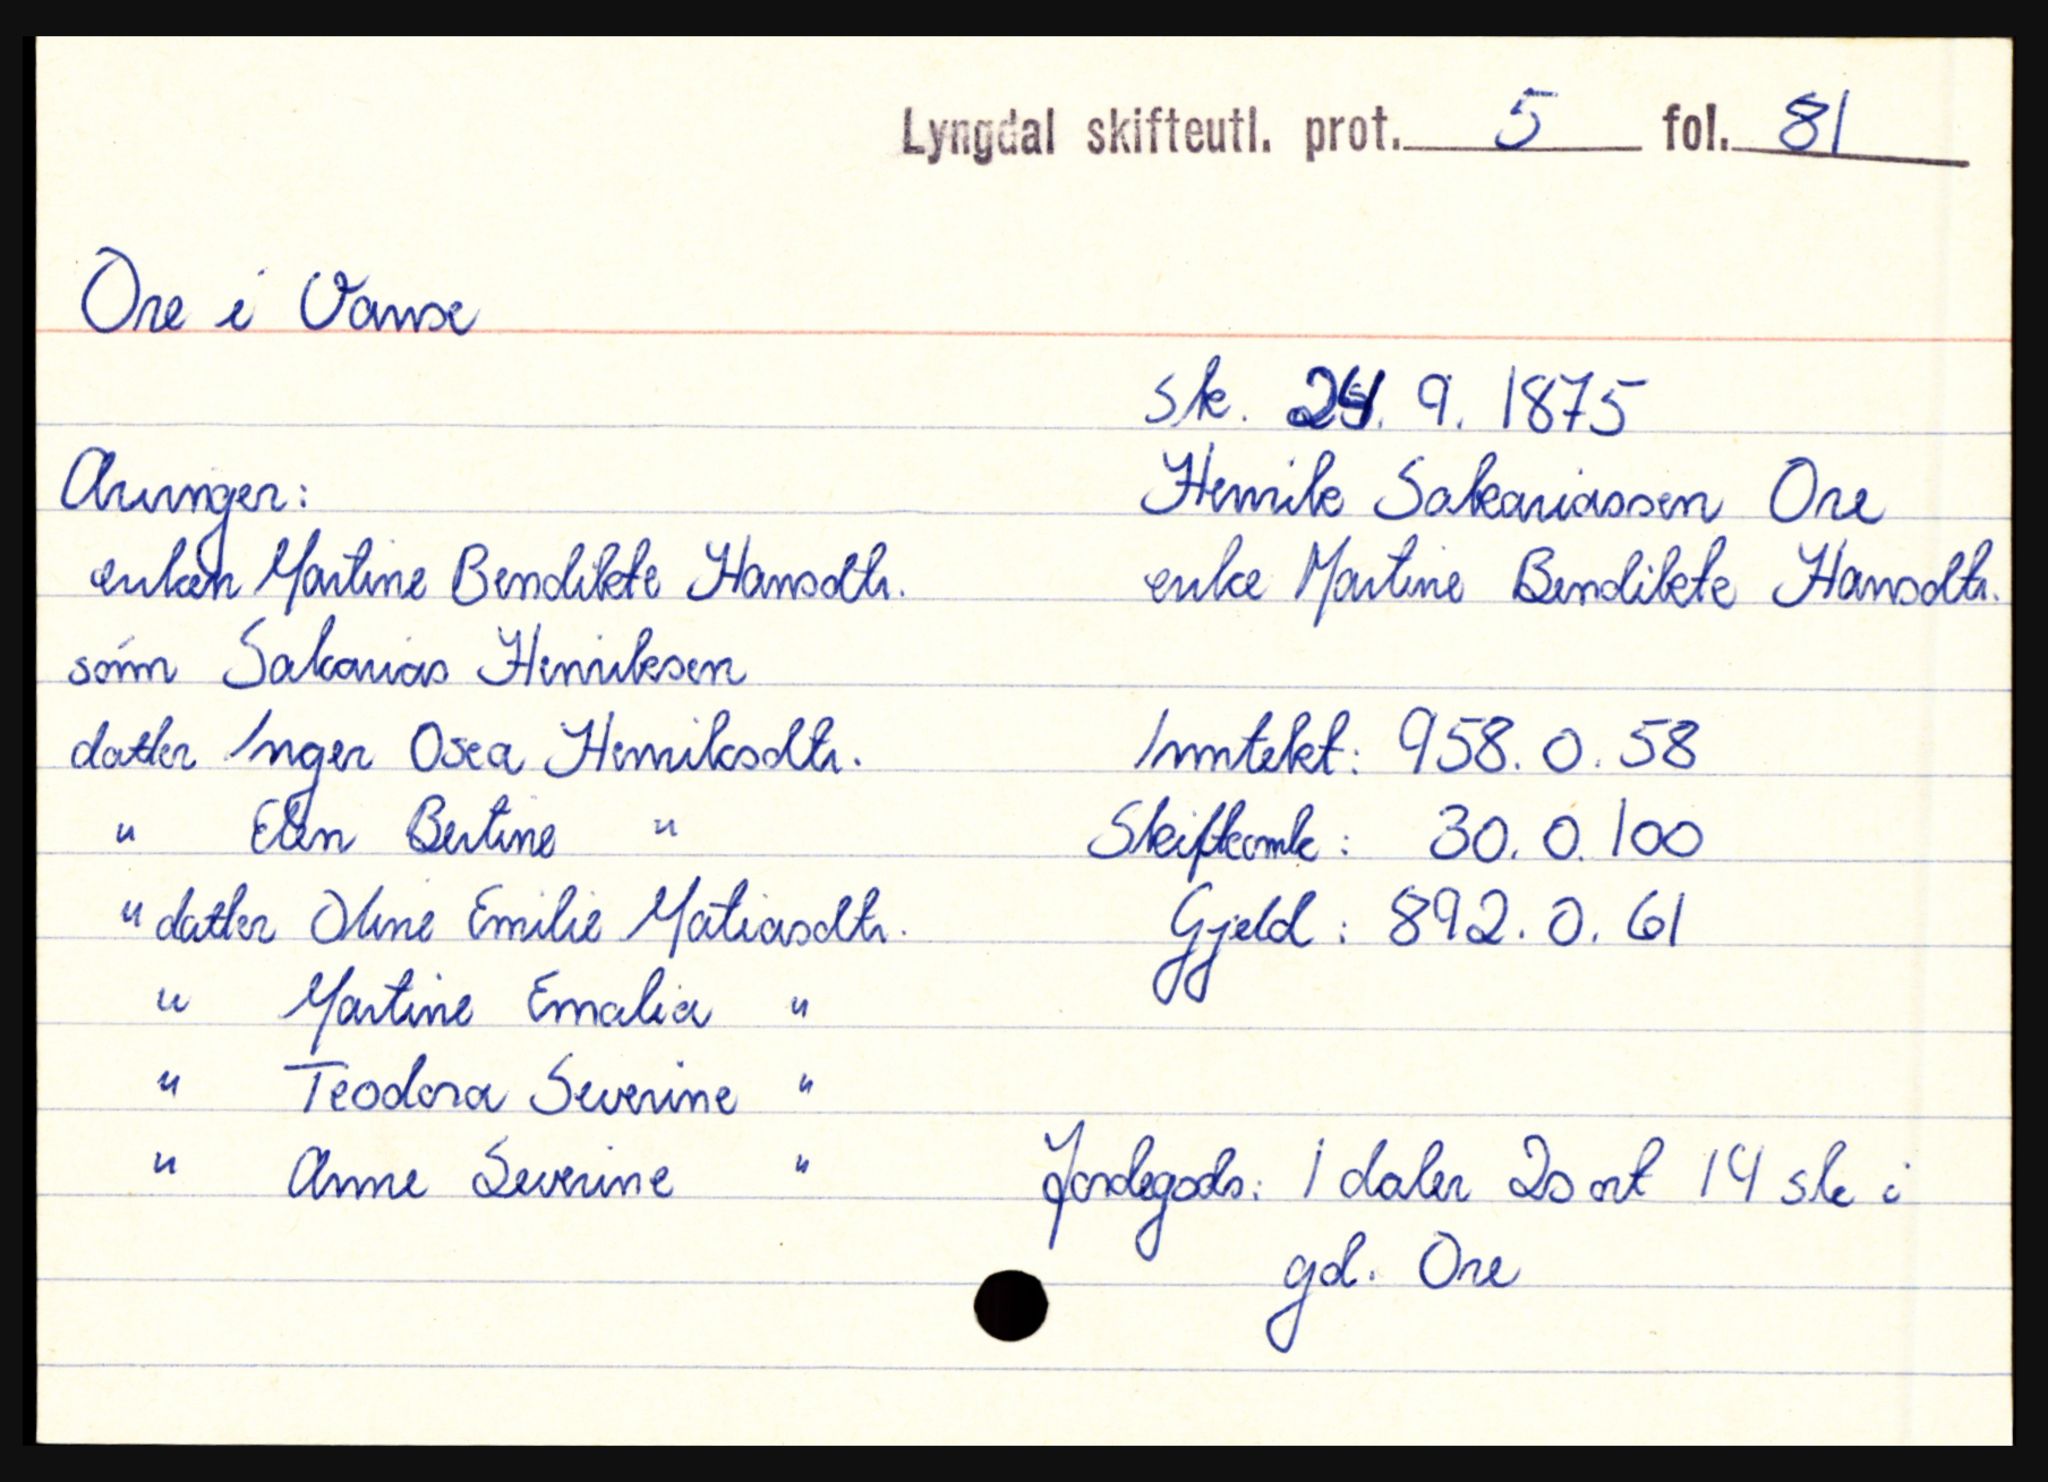 Lyngdal skifteutl. prot. 5 fol. 81
Ore i Vanse
sk. 24. 9. 1875
Henrik Sakariassen Ore
enke Martine Bendikte Hansdtr.
Arvinger:
enken Martine Bendikte Hansdtr.
sönn Sakarias Henriksen
datter Inger Osea Henriksdtr.
" Elen Bertine "
" datter Oline Emilie Matiasdtr.
" Martine Emalia "
" Teodora Severine "
" Anne Severine "
Inntekt: 958. 0. 58
Skiftkomk: 30. 0. 100
Gjeld: 892. 0. 61
Jordegods: 1 daler 2 ort 14 sk i
gd. Ore